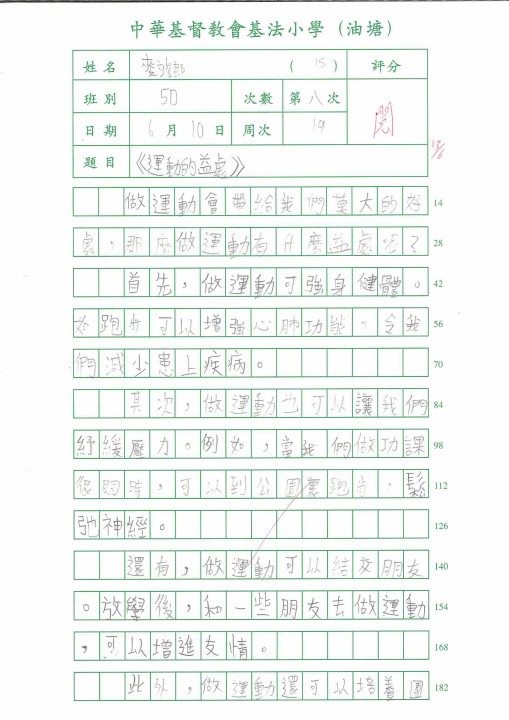 中華基督教會基法小學（油塘）
姓名 （15） 評分
班別 5D 次數 第八次 閱
日期 6月10日 周次 19
題目 《運動的益處》
做運動會帶給我們莫大的好 14
處，那麼做運動有什麼益處呢？ 28
首先，做運動可強身健體。 42
如跑步可以增強心肺功能，令我 56
們減少患上疾病。 70
其次，做運動也可以讓我們 84
紓緩壓力。例如，當我們做功課 98
很 ，可以到公園裏跑步，鬆 112
弛神經。 126
還有，做運動可以結交朋友 140
。放學後，和一些朋友去做運動 154
，可以增進友情。 168
此外，做運動還可以培養團 182